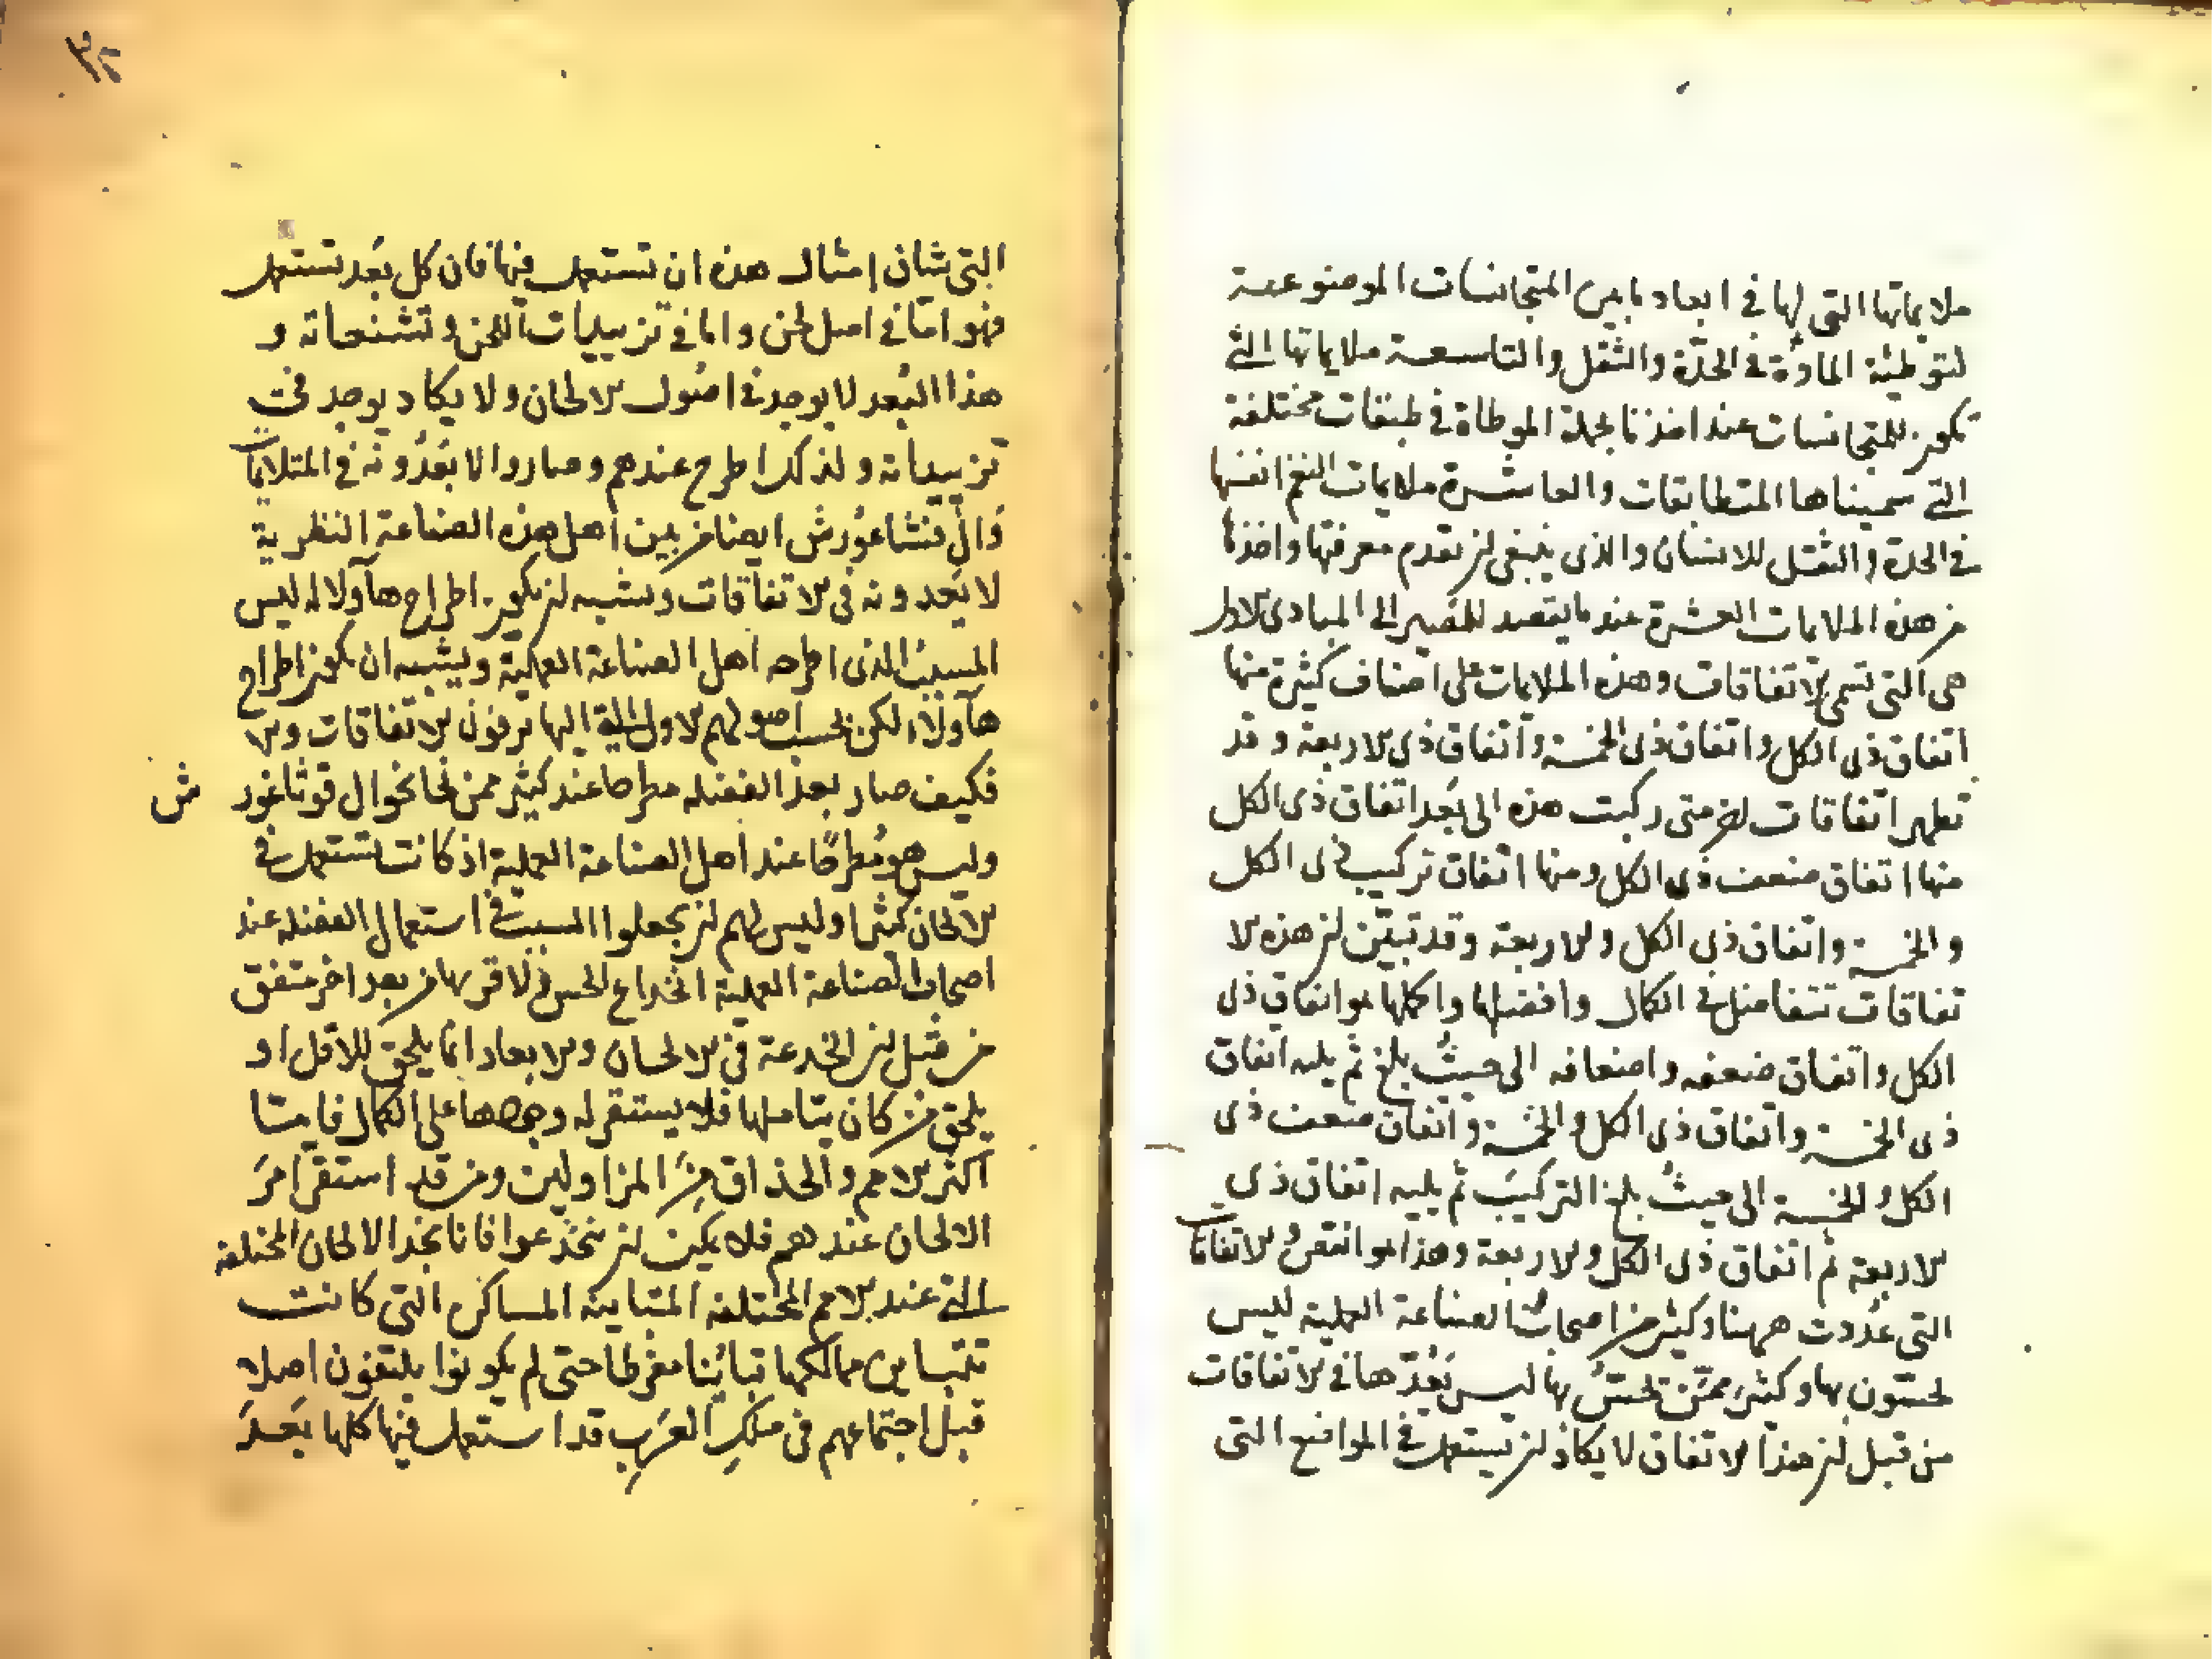 ملايماتها التى لها فى ابعاد ما بين المتجانسات الموضوعة
لتوطئة المادة فى الحدة والثقل والتاسعة ملايماتها التى
تكون للمتجانسات عند اخذنا لجملة الموطاة فى طبقات مختلفة
التى سميناها المتطابقات والعاشرة ملايمات النغم انفسها
فى الحدة والثقل للانسان والذى ينبغى ان تقدم معرفتها واخذنا
من هذه الملايمات العشرة عندما يقصد المصير الى المبادى الاول
هى التى تسمى الاتفاقات وهذه الملايمات على اصناف كثيرة منها
اتفاق ذى الكل واتفاق ذى الخمسة واتفاق ذى الاربعة وقد
تظهر اتفاقات اخر متى ركبت هذه الى بعد اتفاق ذى الكل
منها اتفاق ضعف ذى الكل ومنها اتفاق تركيب ذى الكل
والخمسة واتفاق ذى الكل والاربعة وقد تبين ان هذه الا
تفاقات تتفاضل فى الكمال وافضلها واكملها هو اتفاق ذى
الكل واتفاق ضعفه واضعافه الى حيث بلغ ثم يليه اتفاق
ذى الخمسة واتفاق ذى الكل والخمسة واتفاق ضعف ذى
الكل والخمسة الى حيث بلغ التركيب ثم يليه اتفاق ذى
الاربعة ثم اتفاق ذى الكل والاربعة وهذا هو انقص الاتفاقات
التى عددت ههنا وكثير من اصحاب الصناعة العملية ليس
يحسون بها وكثير ممن يحس بها ليس يعدها فى الاتفاقات
من قبل ان هذا الاتفاق لا يكاد ان يستعمل فى المواضع التى
٣٢
التى شان امثال هذه ان تستعمل فيها فان كل بعد تستعمل
فهو اما فى اصل لحن واما فى تزييدات اللحن وتشنعاته و
هذا البعد لا يوجد فى اصول الالحان ولا يكاد يوجد فى
تزييداته ولذلك اطرح عندهم وصاروا لا يعدونه فى المتلايمات
وال فثاغورش ايضا من بين اهل هذه الصناعة النظرية
لا يعدونه فى الاتفاقات ويشبه ان يكون اطراح هاولا له ليس
السبب الذى اطرحه اهل الصناعة العملية ويشبه ان يكون اطراح
هاولاء لكن بحسب اصولهم الاول التى اليها ترقون الاتفاقات والا
فكيف صار بعد الفضلة مطرحا عند كثير ممن نحا نحو ال فوثاغور ش
وليس هو مطرحا عند اهل الصناعة العملية اذ كانت تستعمل فى
الالحان كثيرا وليس لهم ان يجعلوا السبب فى استعمال الفضلة عند
اصحاب الصناعة العملية انخداع الحس فى لا قربها من بعد اخر متفق
من قبل ان الخدعة فى الالحان والابعاد انما يلحق للاقل او
يلحق من كان يتاملها فلا يستقر له وجودها على الكمال فاما
اكثر الامم والحذاق من المزاولين ومن قد استقرامر
الالحان عندهم فلا يمكن ان ينخدعوا فانا نجد الالحان المختلفة
التى عند الامم المختلفة المتباينة المساكن التى كانت
تتباين ممالكها تباينا مفرطا حتى لم يكونوا يلتقون اصلا
قبل اجتماعهم فى ملك العرب قد استعمل فيها كلها بعد